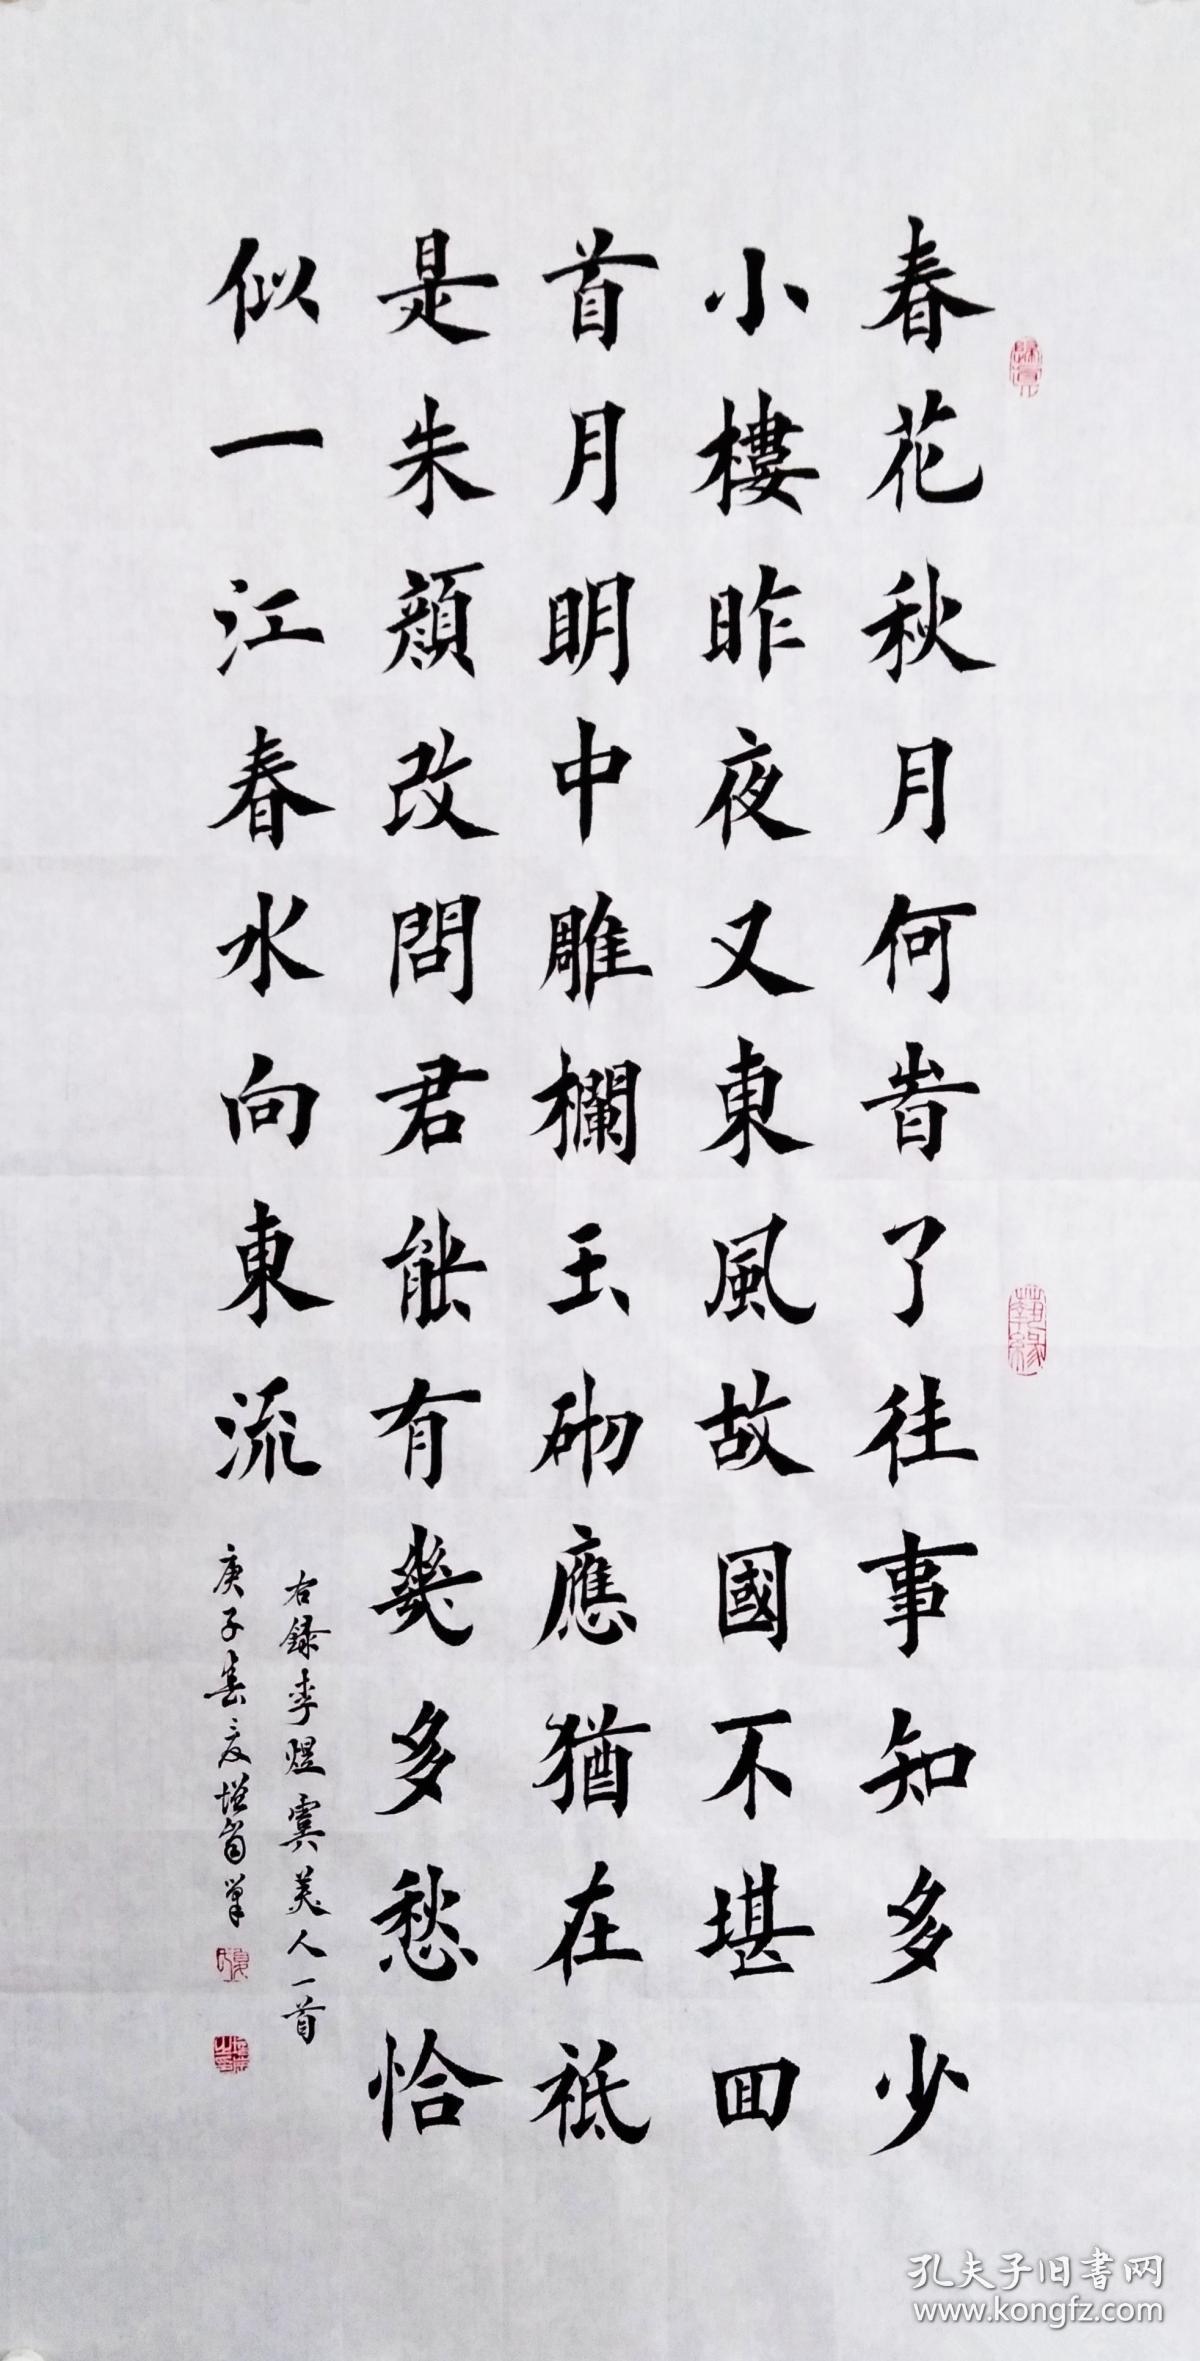 春花秋月何旹了往事知多少
小樓昨夜又東風故國不堪囬
首月眀中雕欄玉砌應猶在祗
是朱顔改問君能有幾多愁恰
似一江春水向東流
右録李煜虞美人一首
庚子春夏增
藝緣
孔夫子旧書网
www.kongfz.com